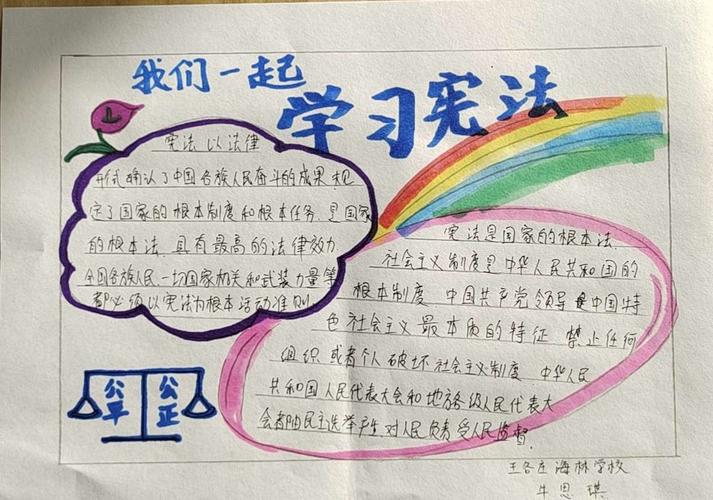 我们一起
学习宪法
宪法以法律
形式确认了中国各族人民奋斗的成果规
定了国家的根本制度和根本任务.是国家
的根本法.具有最高的法律效力
全国各族人民一切国家机关和武装力量等
都必须以宪法为根本活动准则.
宪法是国家的根本法.
社会主义制度是中华人民共和国的
根本制度.中国共产党领导是中国特
色社会主义最本质的特征.禁止任何
组织或者个人破坏社会主义制度.中华人民
共和国人民代表大会和地方各级人民代表大
会都由民主选举产生对人民负责受人民监督.
公平
公正
王各庄海林学校
牛思琪